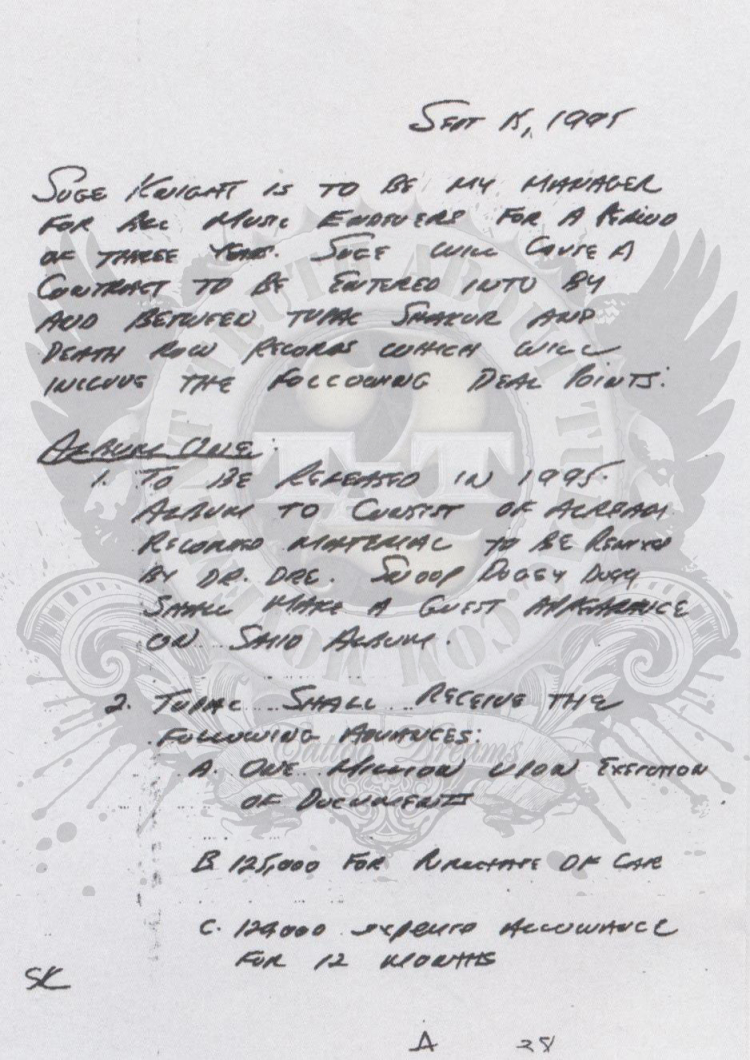 SEPT 15, 1995
SUGE KNIGHT IS TO BE MY MANAGER
FOR ALL MUSIC ENDEVERS FOR A PERIOD
OF THREE YEARS. SUGE WILL CAUSE A
CONTRACT TO BE ENTERED INTO BY
AND BETWEEN TUPAC SHAKUR AND
DEATH ROW RECORDS WHICH WILL
INCLUDE THE FOLLOWING DEAL POINTS:
ALBUM ONE:
1. TO BE RELEASED IN 1995.
ALBUM TO CONSIST OF ALREADY
RECORDED MATERIAL TO BE REMIXED
BY DR. DRE. SNOOP DOGGY DOGG
SHALL MAKE A GUEST APPEARANCE
ON SAID ALBUM.
2. TUPAC SHALL RECEIVE THE
FOLLOWING ADVANCES:
Tattoo Dreams
A. ONE MILLION UPON EXECUTION
OF DOCUMENTS
B 125,000 FOR PURCHASE OF CAR
C. 120,000 EXPENSE ALLOWANCE
FOR 12 MONTHS
SK